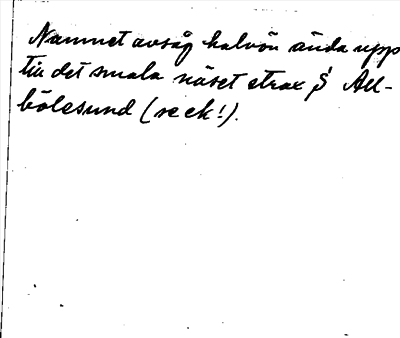 Namnet avsåg halvön ända upp
till det smala näset strax S All-
bölesund (se ek!).